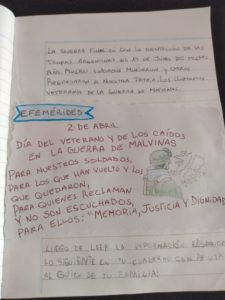 LA GUERRA FINALIZÓ CON LA RENDICIÓN DE LAS
TROPAS ARGENTINAS EL 14 DE JUNIO DEL MISMO
AÑO. MUCHOS SOLDADOS MURIERON Y OTROS
REGRESARON A NUESTRA PATRIA. LOS LLAMAMOS
VETERANOS DE LA GUERRA DE MALVINAS.
EFEMÉRIDES
2 DE ABRIL
DÍA DEL VETERANO Y DE LOS CAÍDOS
EN LA GUERRA DE MALVINAS
PARA NUESTROS SOLDADOS,
PARA LOS QUE HAN VUELTO Y LOS
QUE QUEDARON,
PARA QUIENES RECLAMAN
Y NO SON ESCUCHADOS,
PARA ELLOS: "MEMORIA, JUSTICIA Y DIGNIDAD
LUEGO DE LEER LA INFORMACIÓN
LO SIGUIENTE EN TU CUADERNO CON AYUDA
DE TU FAMILIA: